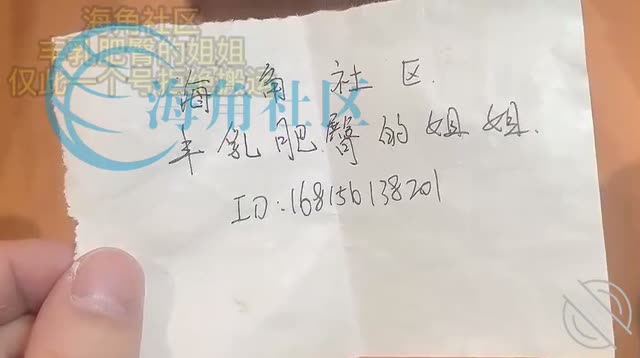 海角社区
丰乳肥臀的姐姐
仅此一个号
海角社区.
海角社区
丰乳肥臀的姐姐.
ID:168156138201